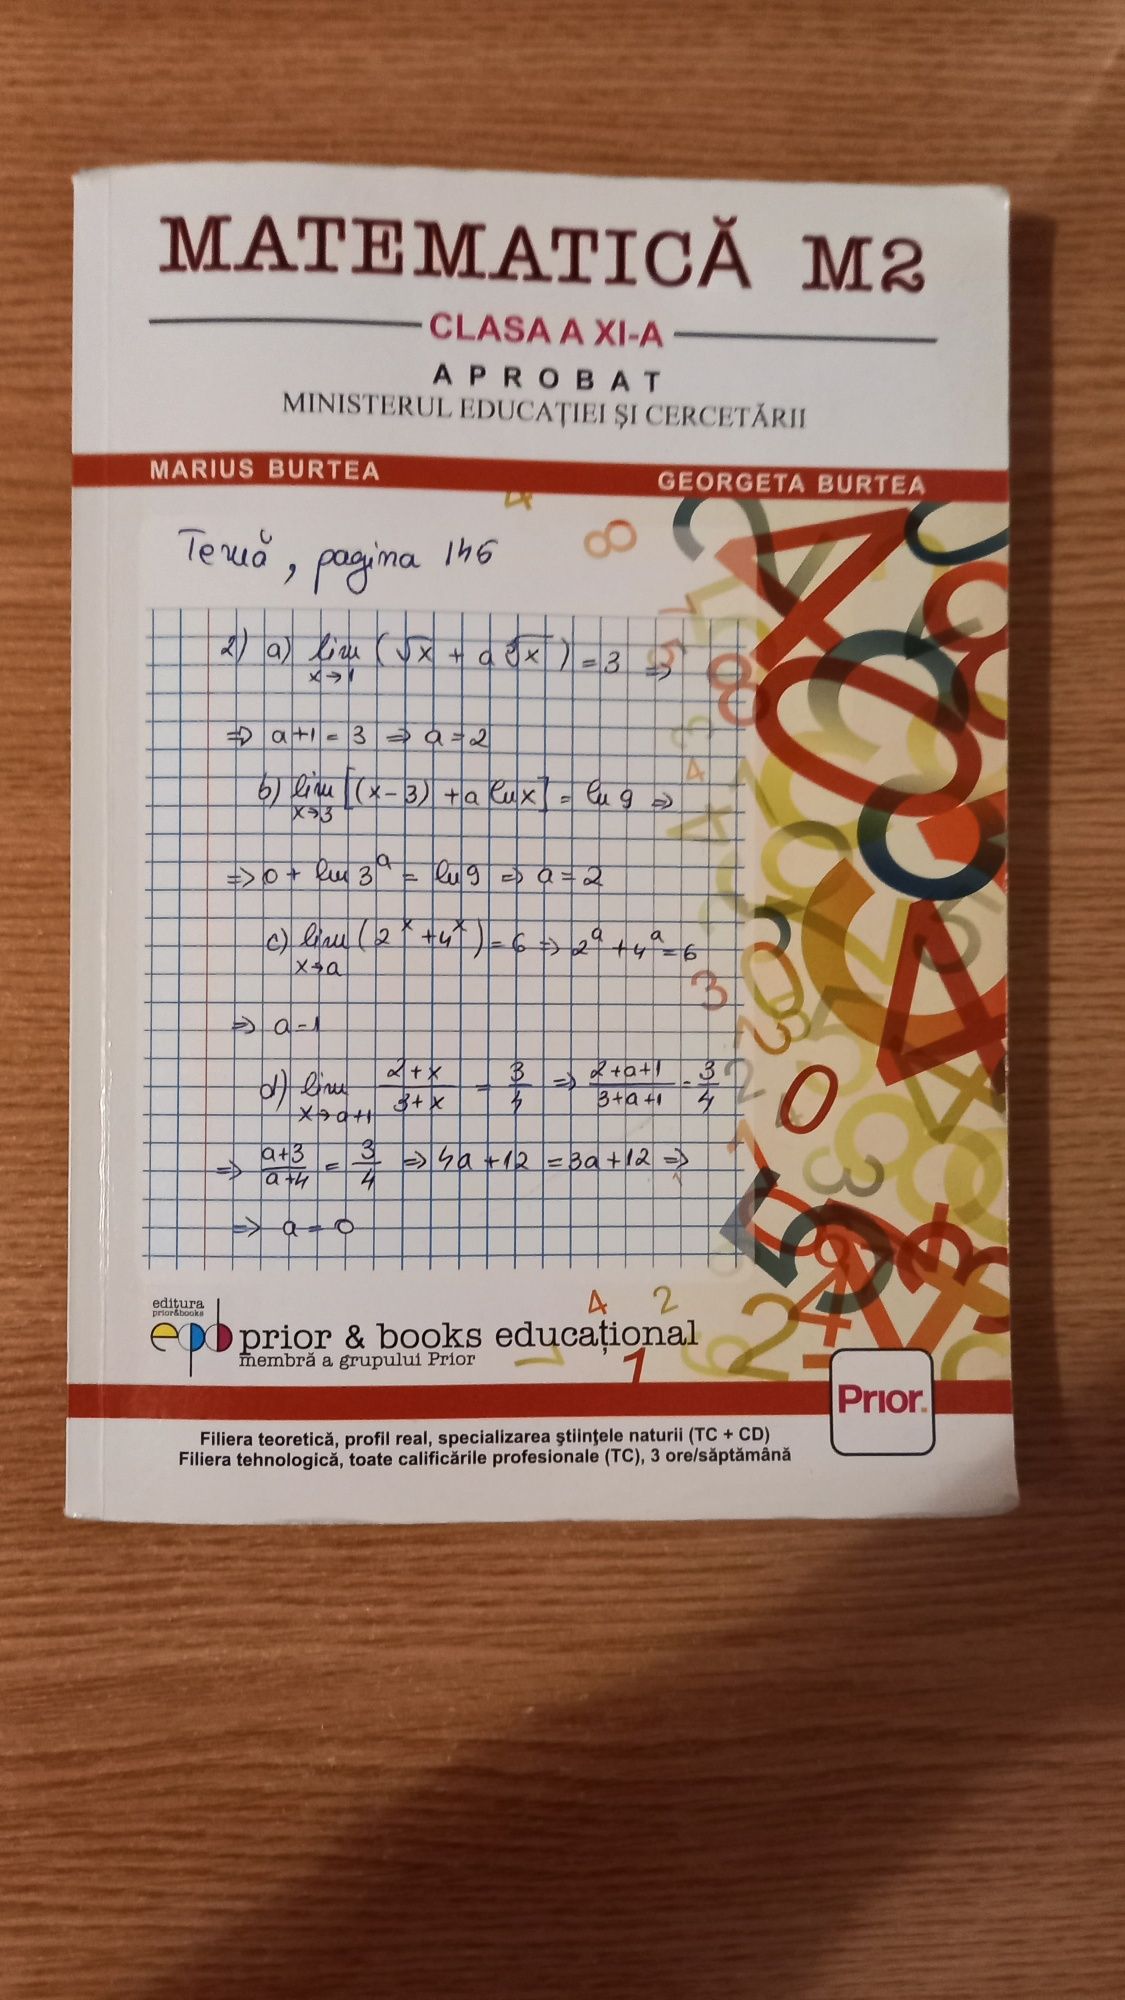 MATEMATICĂ M2
CLASA A XI-A
APROBAT
MINISTERUL EDUCAȚIEI ȘI CERCETĂRII
MARIUS BURTEA GEORGETA BURTEA
Temă, pagina 146
2) a) lim (√x + a ∛x) = 3 ⇒
x→1
⇒ a+1 = 3 ⇒ a = 2
b) lim [(x-3) + a ln x] = ln 9 ⇒
x→3
⇒ 0 + ln 3^a = ln 9 ⇒ a = 2
c) lim (2^x + 4^x) = 6 ⇒ 2^a + 4^a = 6
x→a
⇒ a = 1
d) lim (2+x)/(3+x) = 3/4 ⇒ (2+a+1)/(3+a+1) = 3/4
x→a+1
⇒ (a+3)/(a+4) = 3/4 ⇒ 4a+12 = 3a+12 ⇒
⇒ a = 0
editura
prior&books
epb prior & books educațional
membră a grupului Prior
Prior.
Filiera teoretică, profil real, specializarea științele naturii (TC + CD)
Filiera tehnologică, toate calificările profesionale (TC), 3 ore/săptămână